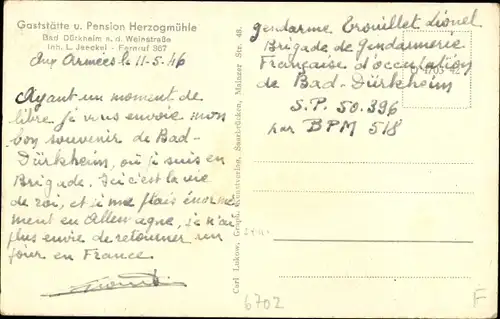 Gaststätte u. Pension Herzogmühle
Bad Dürkheim a. d. Weinstraße
Inh. L. Jaeckel - Fernruf 387
Aux Armées le 11-5-46
Ayant un moment de
libre je vous envoie mon
bon souvenir de Bad-
Dürkheim, où je suis en
Brigade. Ici c'est la vie
de roi, et je me plais énormé-
ment en Allemagne, je n'ai
plus envie de retourner un
jour en France.
Gendarme Trouillet Lionel
Brigade de Gendarmerie
Française d'occupation
de Bad-Dürkheim
S.P. 50.396
par BPM 518
Carl Lukow, Graph. Kunstverlag, Saarbrücken, Mainzer Str. 48.
6702
F